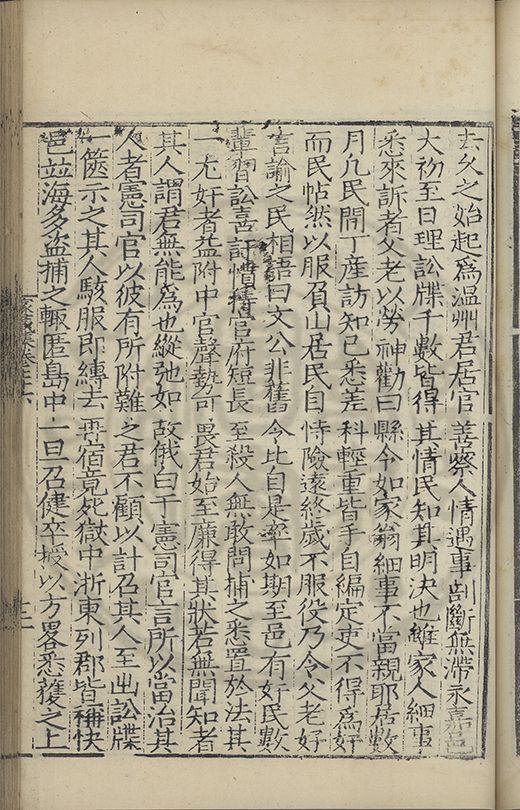 去久之始起爲温州君居官善察人情遇事剖斷無滯永嘉邑
大初至日理訟牒千數皆得其情民知其明決也雖家人細事
悉來訴者父老以勞神勸曰縣令如家翁細事不當親耶居數
月凡民間丁產訪知已悉差科輕重皆手自編定吏不得爲奸
而民帖然以服負山居民自恃險遠終歲不服役乃令父老好
言諭之民相語曰文公非舊令比自是率如期至邑有奸民數
輩習訟喜訐慣持官府短長至殺人無敢問捕之悉置於法其
一尤奸者益附中官聲勢可畏君始至廉得其狀若無聞知者
其人謂君無能爲也縱弛如故俄白于憲司官言所以當治其
人者憲司官以彼有所附難之君不顧以計召其人至出訟牒
一篋示之其人駭服即縳去再宿竟死獄中浙東列郡皆稱快
邑竝海多盜捕之輙匿島中一旦召健卒授以方畧悉獲之上